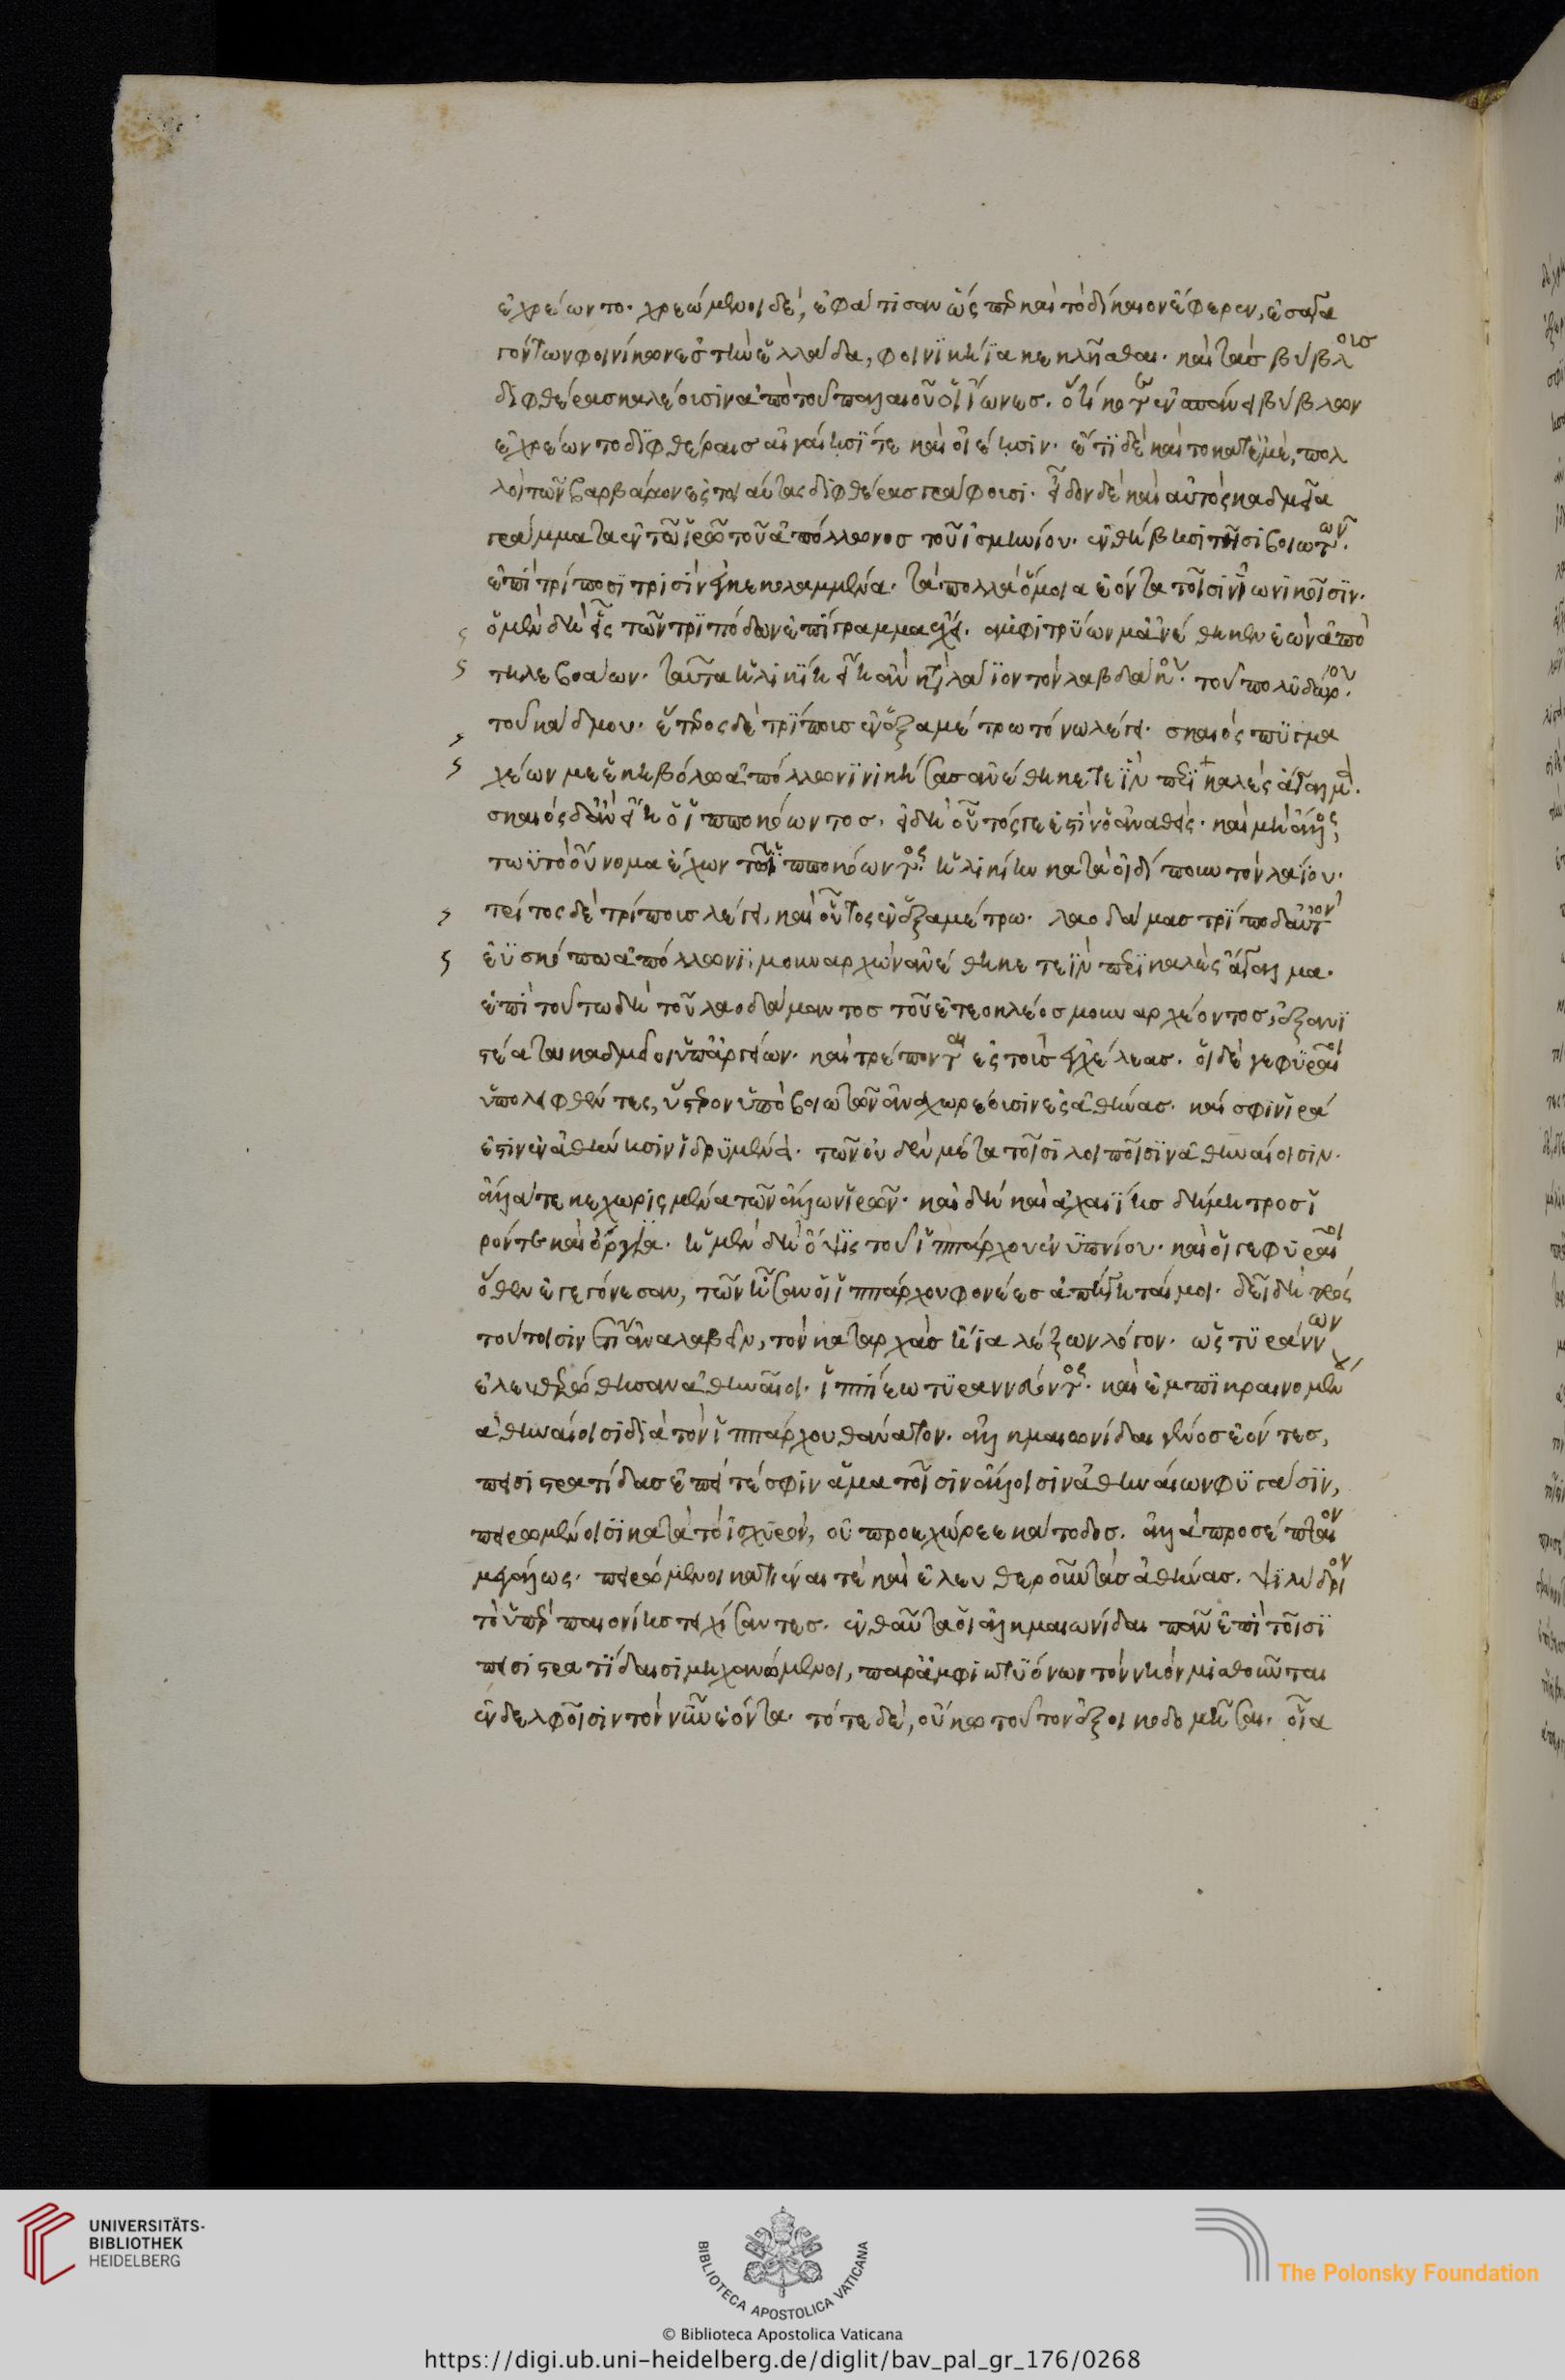 ἐχρέωντο· χρεώμενοι δὲ, ἐφάτισαν ὥσπερ καὶ τὸ δίκαιον ἔφερεν, ἐσαγα
γόντων φοινίκων ἐς τὴν ἑλλάδα, φοινικήϊα κεκλῆσθαι· καὶ τὰς βύβλους
διφθέρας καλέουσιν ἀπὸ τοῦ παλαιοῦ οἱ ἴωνες. ὅτι κοτε ἐν σπάνει βύβλων
ἐχρέωντο διφθέραις αἰγέηισί τε καὶ οἰέηισιν· ἔτι δὲ καὶ τὸ κατ' ἐμὲ, πολ
λοὶ τῶν βαρβάρων ἐς τοιαύτας διφθέρας γράφουσι· εἶδον δὲ καὶ αὐτὸς καδμεῖα
γράμματα ἐν τῶ ἱερῶ τοῦ ἀπόλλωνος τοῦ ἰσμηνίου· ἐν θήβηισι τῆισι βοιωτῶν·
ἐπὶ τρίποσι τρισὶν ἐγκεκολαμμένα· τὰ πολλὰ ὅμοια ἐόντα τοῖσιν ἰωνικοῖσιν·
ὁ μὲν δὴ εἷς τῶν τριπόδων ἐπίγραμμα ἔχει· ἀμφιτρύων μ' ἀνέθηκεν ἐὼν ἀπὸ
τηλεβοάων· ταῦτα ἡλικίη εἴη ἂν κατὰ λάϊον τὸν λαβδάκου· τοῦ πολυδώρου·
τοῦ κάδμου· ἕτερος δὲ τρίπους ἐν ἑξαμέτρω τόνω λέγει· σκαῖος πυγμα
χέων με ἑκηβόλω ἀπόλλωνι νικήσας ἀνέθηκε τεῒν περικαλλὲς ἄγαλμα·
σκαῖος δ' ἂν εἴη ὁ ἱπποκόωντος· εἰ δὴ οὗτός γε ἐστὶν ὁ ἀναθεὶς· καὶ μὴ ἄλλος
τωὐτὸ οὔνομα ἔχων τῶ ἱπποκόωντος· ἡλικίην κατὰ οἰδίπουν τὸν λαΐου·
τρίτος δὲ τρίπους λέγει, καὶ οὗτος ἐν ἑξαμέτρω· λαοδάμας τρίποδ' αὐτὸν
ἐϋσκόπω ἀπόλλωνι, μουναρχέων ἀνέθηκε τεῒν περικαλλὲς ἄγαλμα·
ἐπὶ τούτω δὴ τοῦ λαοδάμαντος τοῦ ἐτεοκλέος μουναρχέοντος, ἐξανι
στέαται καδμεῖοι ὑπ' ἀργείων· καὶ τρέπονται ἐς τοὺς ἐγχέλεας. οἱ δὲ γεφυραῖοι
ὑπολειφθέντες, ὕστερον ὑπὸ βοιωτῶν ἀναχωρέουσιν ἐς ἀθήνας· καί σφιν ἱρά
ἐστιν ἐν ἀθήνηισιν ἱδρυμένα· τῶν οὐδὲν μέτα τοῖσι λοιποῖσιν ἀθηναίοισιν·
ἄλλά τε κεχωρισμένα τῶν ἄλλων ἱρῶν· καὶ δὴ καὶ ἀχαιΐης δήμητρος ἱ
ρόν τε καὶ ὄργια· ἡ μὲν δὴ ὄψις τοῦ ἱππάρχου ἐνυπνίου· καὶ οἱ γεφυραῖοι
ὅθεν ἐγεγόνεσαν, τῶν ἦσαν οἱ ἱππάρχου φονέες ἀπήγηταί μοι· δεῖ δὴ πρὸς
τούτοισιν ἔτι ἀναλαβεῖν, τὸν κατ' ἀρχὰς ἤϊα λέξων λόγον· ὡς τυράννων
ἐλευθερώθησαν ἀθηναῖοι· ἱππίεω τυραννεύοντος· καὶ ἐμπικραινομένου
ἀθηναίοισι διὰ τὸν ἱππάρχου θάνατον· ἀλκμαιωνίδαι γένος ἐόντες,
πεισιστρατίδας ἐπεί τέ σφιν ἅμα τοῖσιν ἄλλοισιν ἀθηναίων φυγάσιν,
πειρωμένοισι κατὰ τὸ ἰσχυρὸν, οὐ προεχώρεε κάτοδος. ἀλλὰ προσέπταιον
μεγάλως· πειρώμενοι κατιέναι τὲ καὶ ἐλευθεροῦν τὰς ἀθήνας. λιψύδριον
τὸ ὑπὲρ παιονίης τειχίσαντες· ἐνθαῦτα οἱ ἀλκμαιωνίδαι πᾶν ἐπὶ τοῖσι
πεισιστρατίδαισι μηχανώμενοι, παρ' ἀμφικτυόνων τὸν νηὸν μισθοῦνται
ἐν δελφοῖσιν τὸν νῦν ἐόντα· τότε δὲ, οὔκω τοῦτον ἐξοικοδομῆσαι· οἷα
UNIVERSITÄTS-
BIBLIOTHEK
HEIDELBERG
BIBLIOTECA APOSTOLICA VATICANA
The Polonsky Foundation
© Biblioteca Apostolica Vaticana
https://digi.ub.uni-heidelberg.de/diglit/bav_pal_gr_176/0268